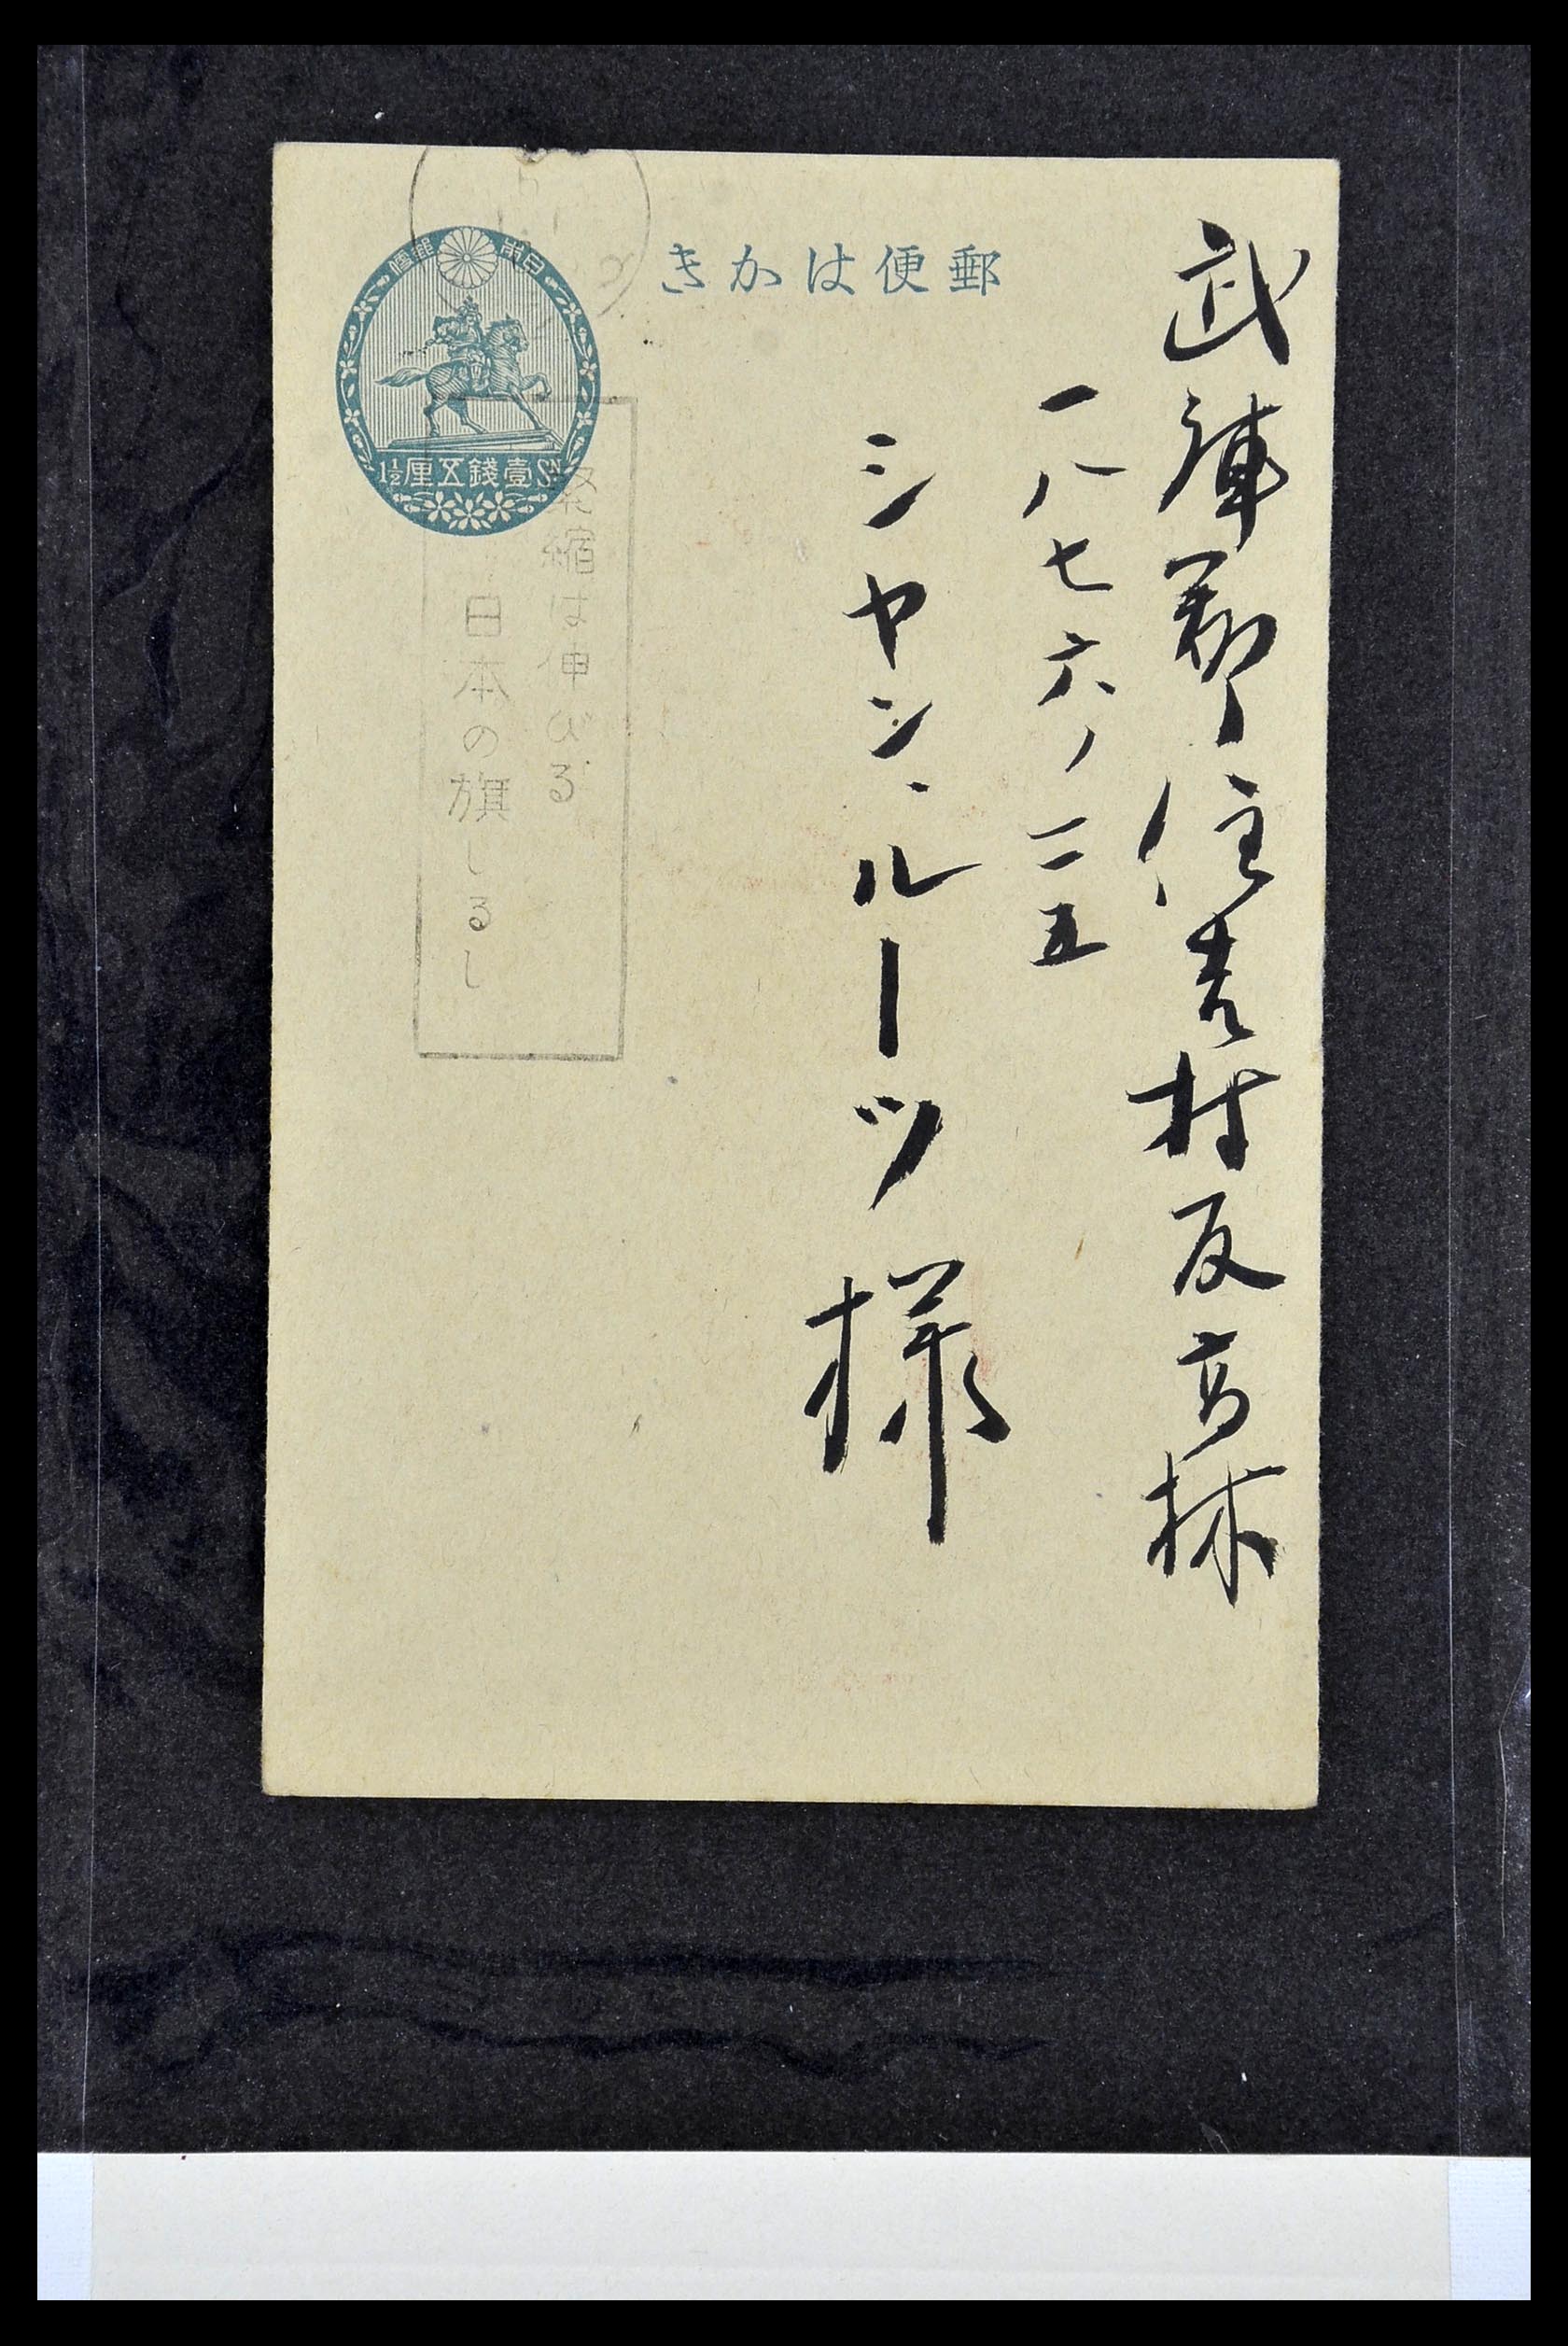 武庫郡住吉村反高林
一八七六ノ二五
シャン・ルーツ様
郵便はかき
日本郵便
SN壹錢五厘1½
緊縮は伸びる
日本の旗しるし